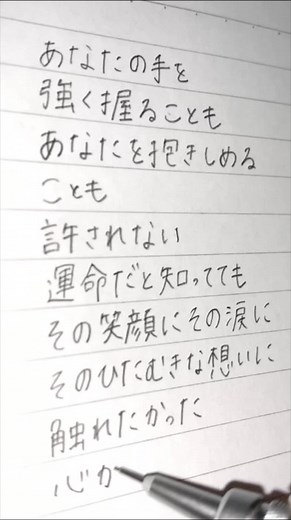 あなたの手を
強く握ることも
あなたを抱きしめる
ことも
許されない
運命だと知ってても
その笑顔にその涙に
そのひたむきな想いに
触れたかった
心か